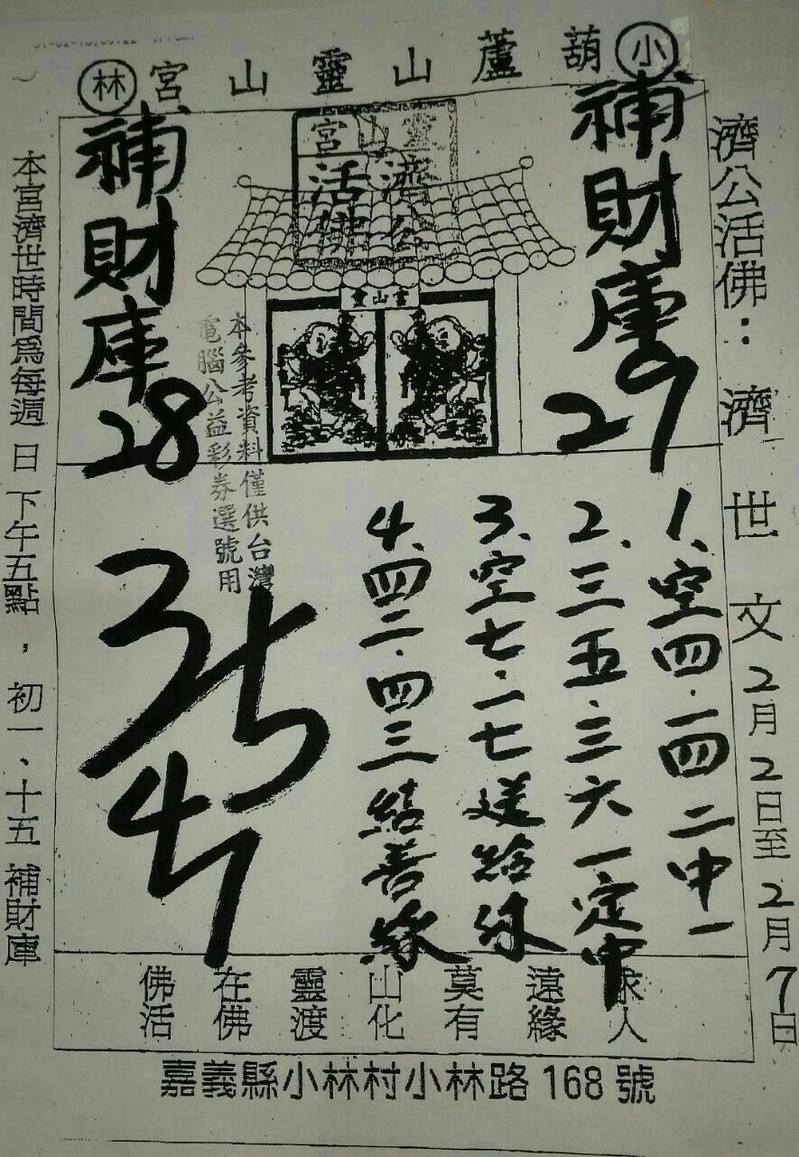 小葫蘆山靈山宮林
濟公活佛：濟世文2月2日至2月7日
補財庫29
靈山宮
濟公活佛
靈山宮
補財庫28
本參考資料僅供台灣
電腦公益彩券選號用
1、空四．一四二中一
2、三五．三六一定中
3、空七．一七送給你
4、四二．四三結善緣
35
47
求人
遠緣
莫有
山化
靈渡
在佛
佛活
本宮濟世時間為每週日下午五點，初一、十五補財庫
嘉義縣小林村小林路168號